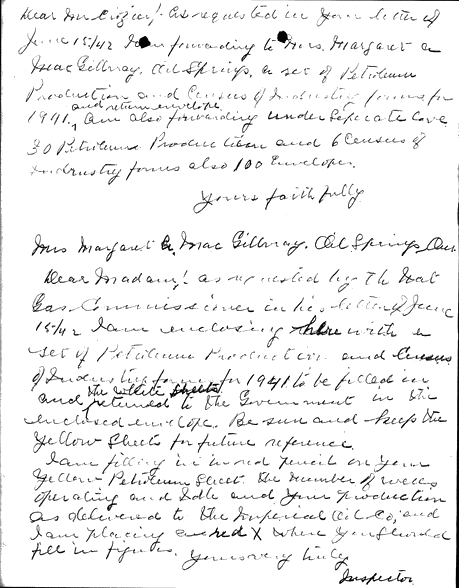 Dear Mr Crozier! As requested in your letter of
June 15/42 I am forwarding to Mrs. Margaret A
MacGillvray, Oil Springs, a set of Petroleum
Production and Census of Industry forms for
and return envelope
1941, Am also forwarding under separate cove
30 Petroleum Production and 6 Census of
Industry forms also 100 Envelopes.
Yours faithfully
Mrs Margaret A. MacGillvray. Oil Springs Ont
Dear Madam! as requested by the Nat
Gas Commissioner in his letter of June
15/42 I am enclosing here with a
set of Petroleum Production and Census
of Industry forms for 1941 to be filled in
the white sheets
and returned to the Government in the
enclosed envelope. Be sure and keep the
Yellow Sheets for future reference.
I am filling in in red pencil on your
Yellow Petroleum Sheet the number of wells
operating and Idle and your production
as delivered to the Imperial Oil Co, and
I am placing a red X where you should
fill in figures. Yours very truly
Inspector